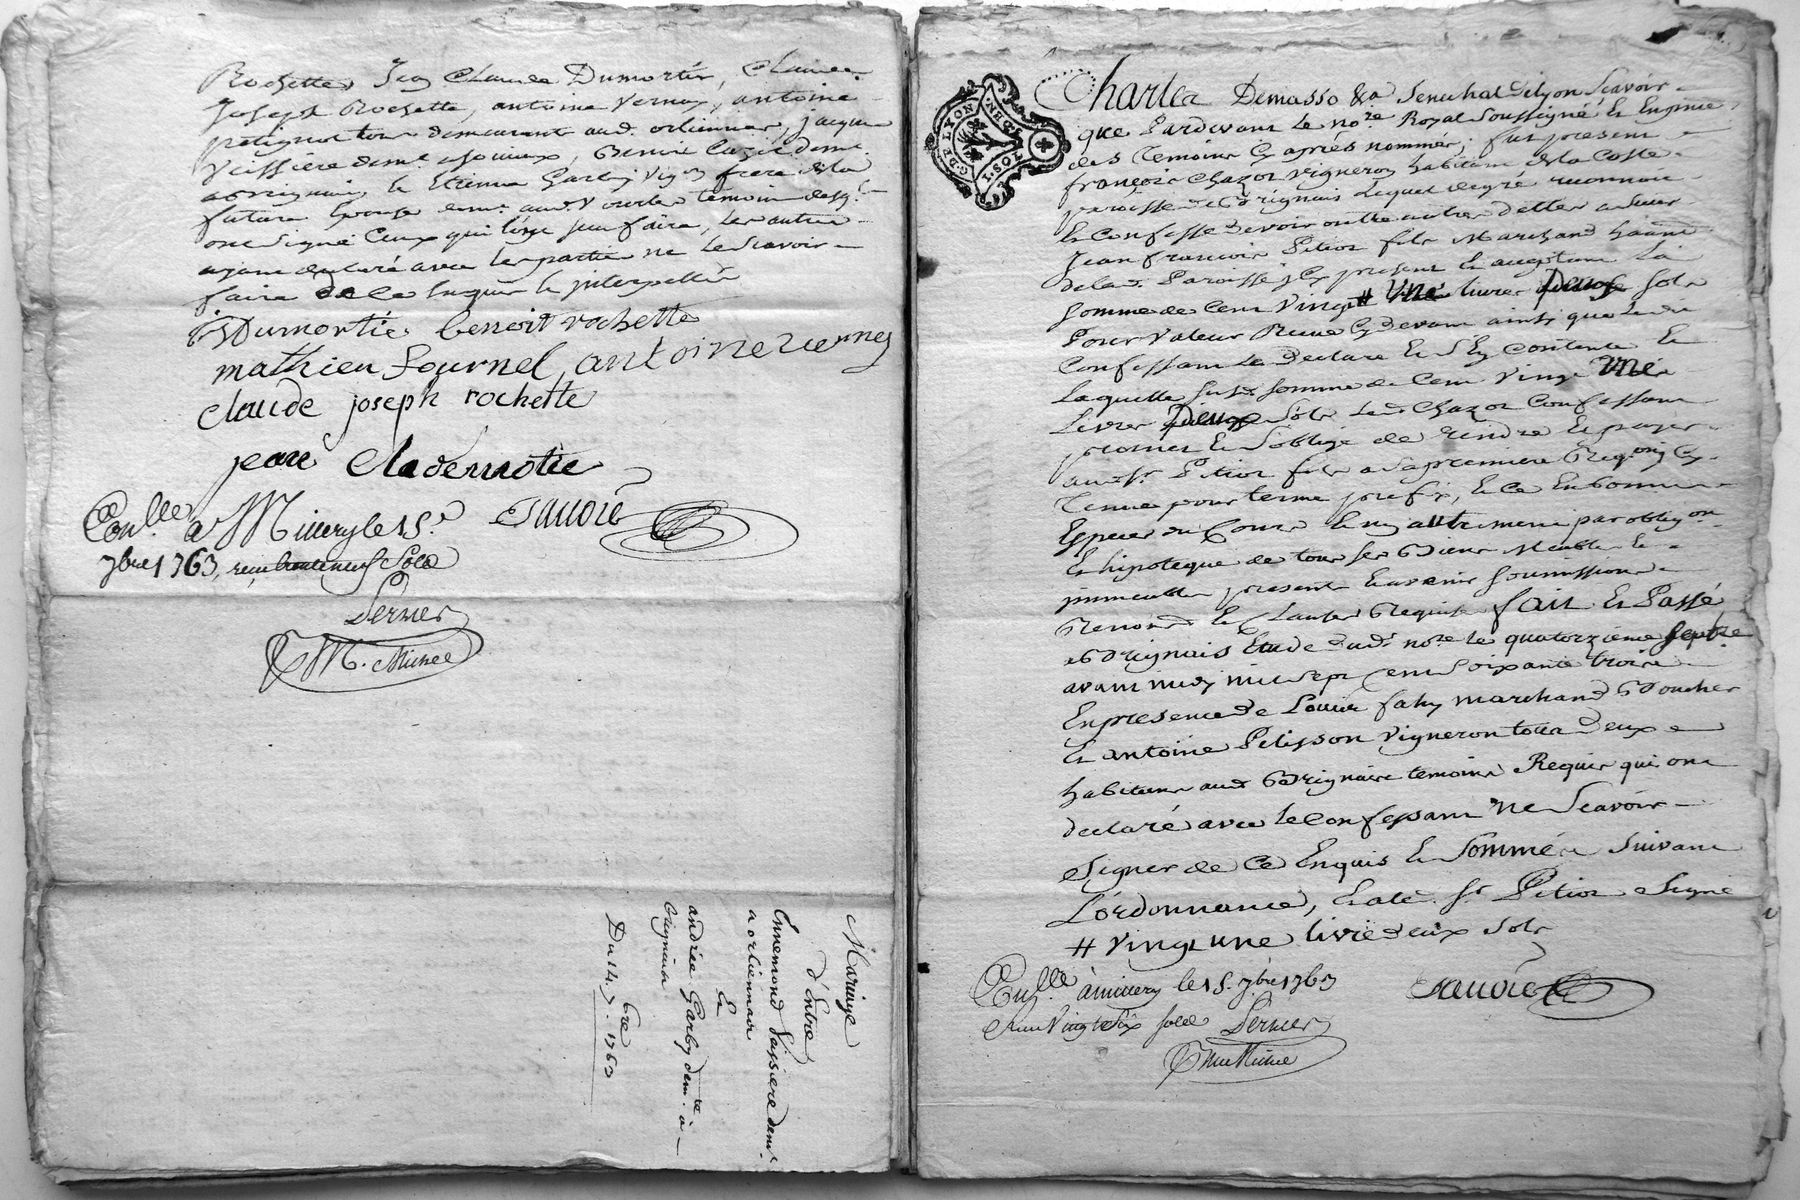 Rochette, Jean Claude Dumortier, Claude
Joseph Rochette, antoine Vernay, antoine
petignot tous demeurant aud. orliennas, jacque
Veissiere demt
a Brignais, & Etienne Garby Vigon frere de la
future Epouse demt aud. Vourles temoins desqls
ont signé Ceux qui l'ont sceu faire, les autres
ayant declaré avec les parties ne le scavoir
faire de ce Enquis & interpellés
Dumortie benoit rochette
mathieu fournel antoine verney
claude joseph rochette
jean
Conlle a Millery le 15e
7bre 1763, reçu sols
Sauoie
Mariage
d'Entre
Ennemond Vaissiere demt
a orliennas
Et
andrée Garby demte à
brignais
Du 14. 7bre 1763
G. DE LYON 1. SOL
Charles Demasso &a Senechal de lyon scavoir
que Pardevant le nore Royal soussigné & En presence
des Temoins Cy après nommés, fut present
françois Chazot Vigneron habitant de la Coste
paroisse de Brignais lequel de gré reconnoit
& Confesse devoir outre autres dettes a sieur
Jean francois Pitiot fils Marchand habitant
de lad. Paroisse icy present & acceptant La
somme de Cent Vingt # Une livres Deux sols
Pour Valeur Receue Cy devant ainsi que led.
Confessant La Declaré & s'En Contente &
Laquelle susd. somme de Cent Vingt Une
Livres Deux sols led. Chazot Confessant
promet & s'oblige de rendre & payer
aud. sr. Pitiot fils a sa premiere Requon Cy
Tenue pour terme prefix, & Ce En bonnes
Especes du Cours & non autrement par obligon
& hipoteque de tous ses Biens Meubles &
immeubles presents & avenir soumissions
Renond & Clauses Requises fait & Passé
a Brignais Etude dud. nore le quatorzieme septbre
avant midy mil sept cent soixante trois
En presence de Louis fahy marchand Boucher
& antoine Pelisson Vigneron tous deux
habitans aud. Brignais temoins Requis qui ont
declaré avec le Confessant ne scavoir
signer de Ce Enquis & sommés suivant
L'ordonnance, & led. sr. Pitiot signé
# Vingt une livre deux sols
Conlle à millery le 15. 7bre 1763
Reçu Vingt six sols
Sauoie